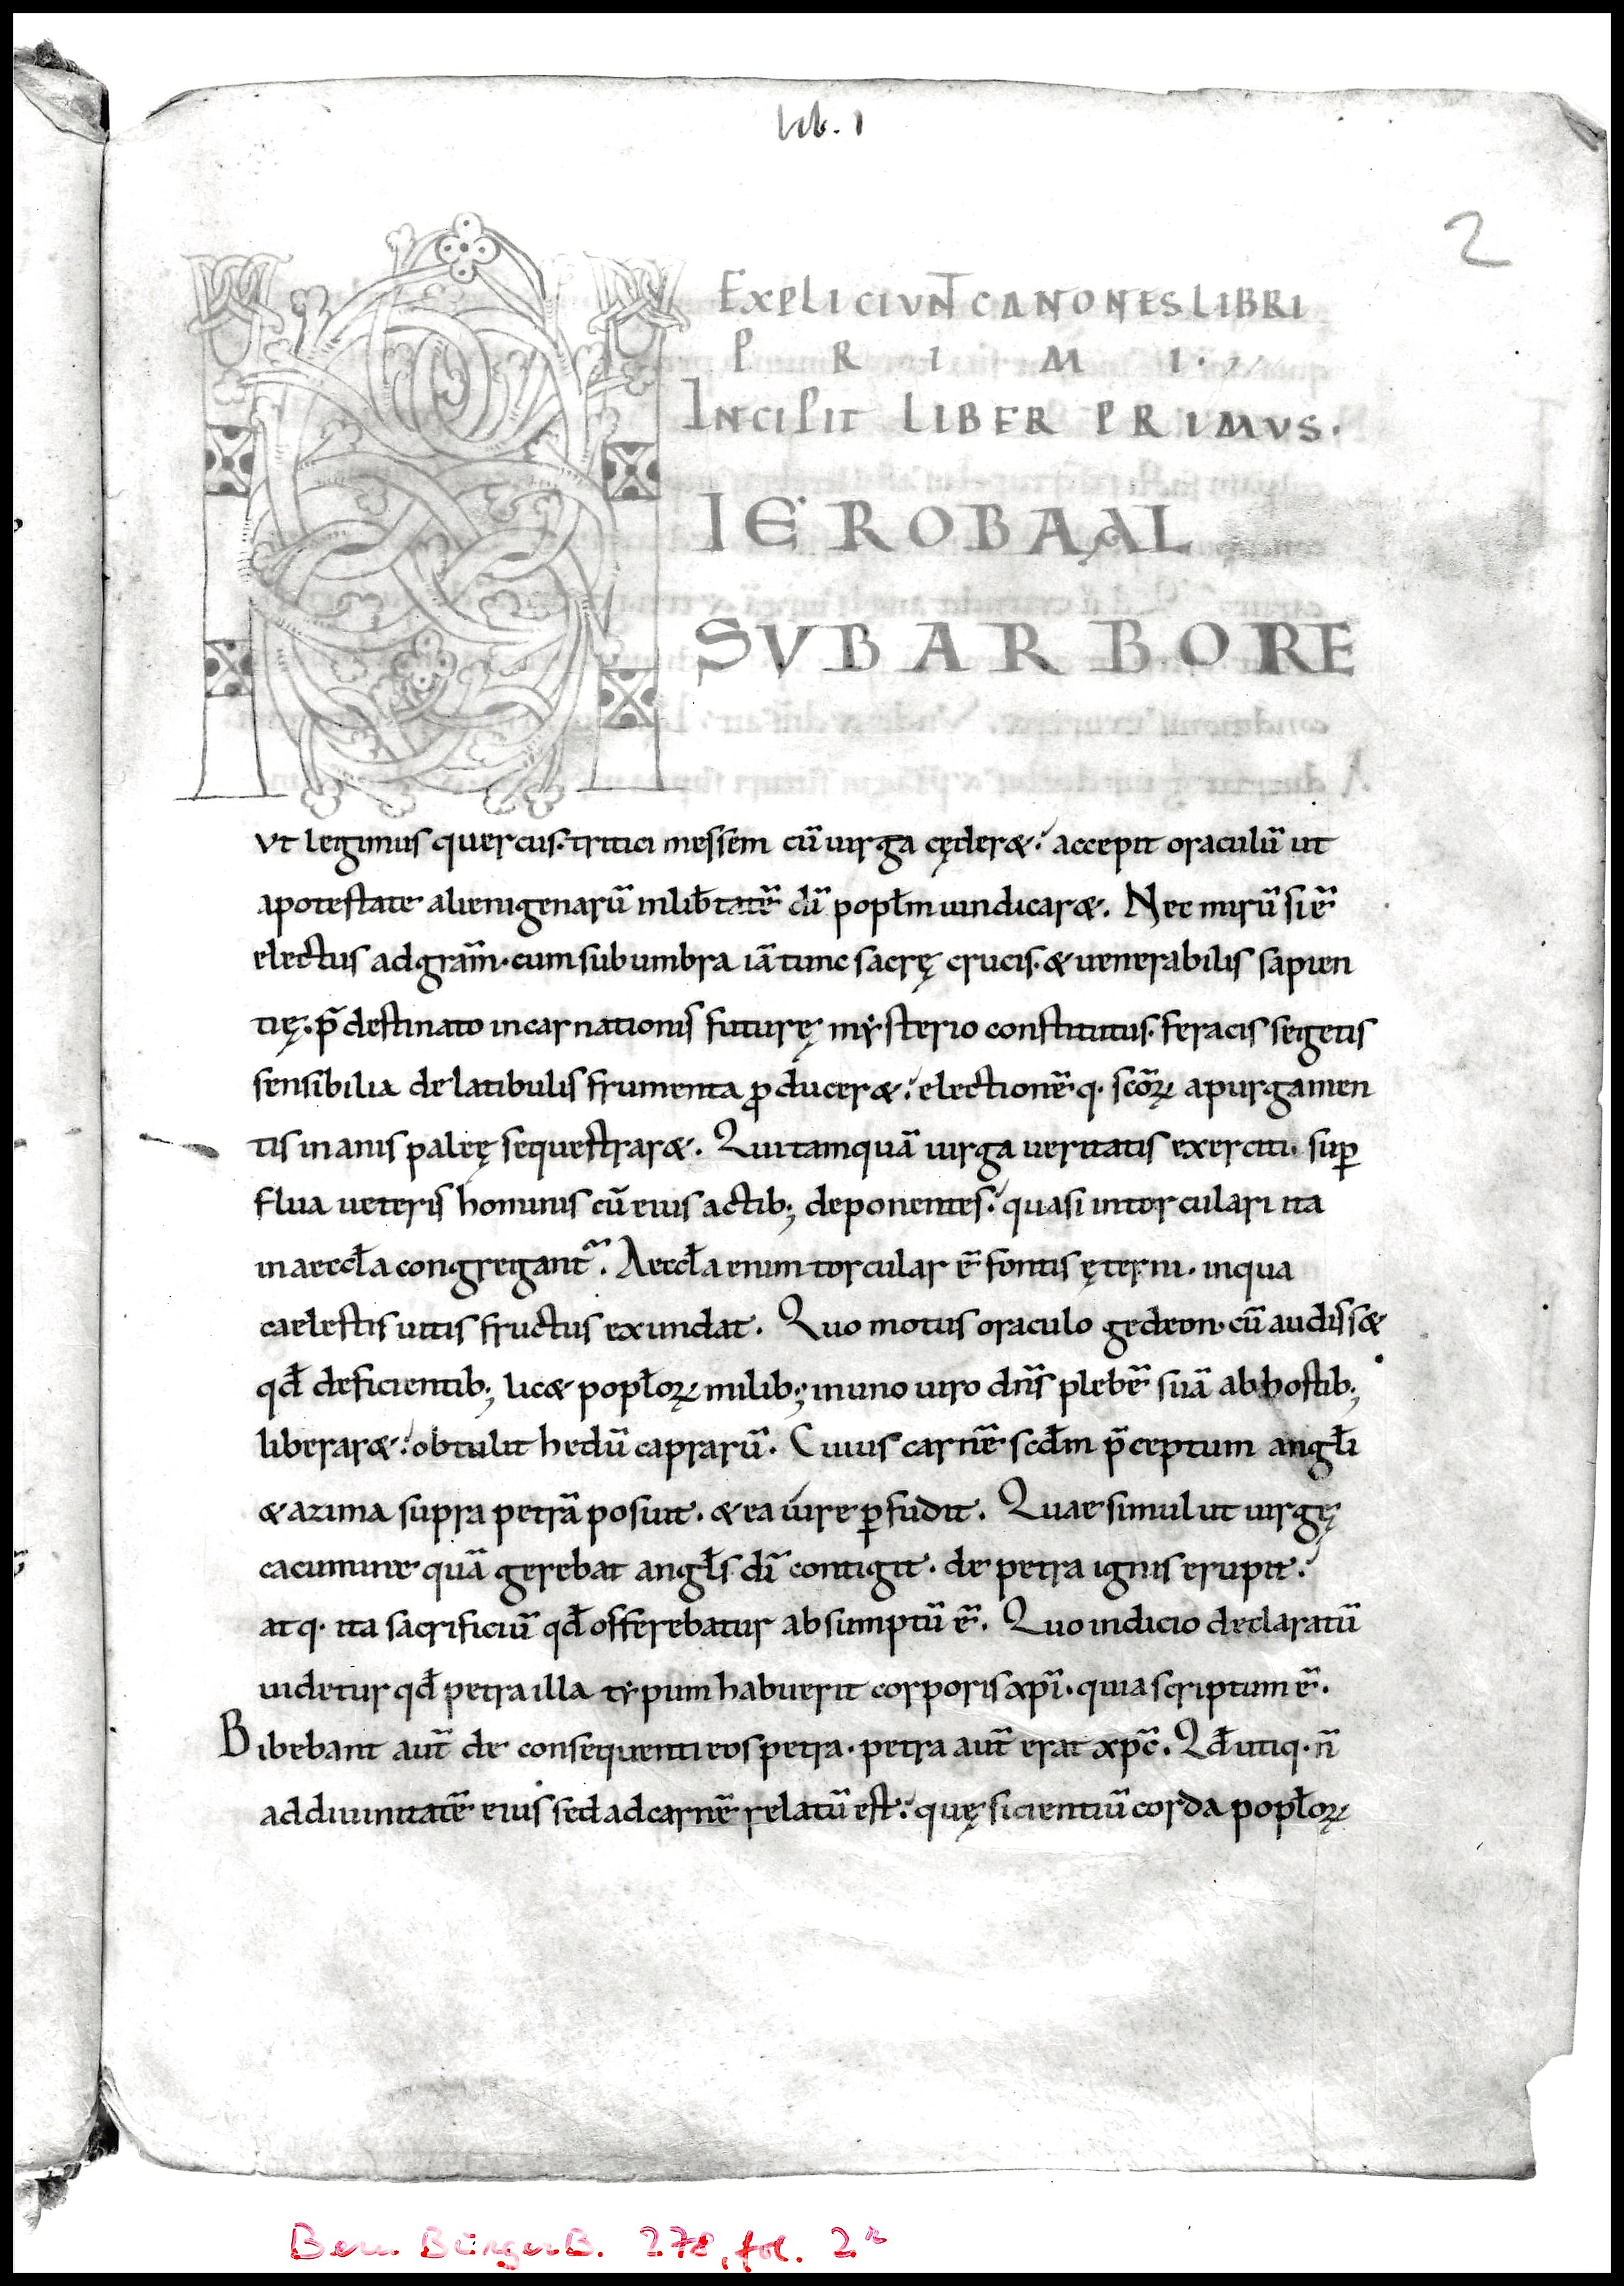 lib. 1
2
EXPLICIUNT CANONES LIBRI
P R I M I.
INCIPIT LIBER PRIMVS.
H
IEROBAAL
SVB ARBORE
vt legimus quercus. tritici messem cū uirga cęderet. accepit oraculū ut
apotestate alienigenarū inlibtatē dī popłm uindicaret. Nec mirū si ē
electus adgrām. cum sub umbra iā tunc sacrę crucis. & uenerabilis sapien
tię. p̄destinato incarnationis futurę mẏsterio constitutus. feracis segetis
sensibilia de latibulis frumenta ꝓduceret. electionēq. scōꝝ apurgamen
tis inanis paleę sequestraret. Qui tamquā uirga ueritatis exerciti. suꝑ
flua ueteris hominis cū eius actib; deponentes. quasi intorculari ita
inaeccła congregant̄. Aeccła enim torcular ē fontis ęterni. inqua
caelestis uitis fructus exundat. Quo motus oraculo gedeon. cū audisset
qđ deficientib; licet popłoꝝ milib; inuno uiro dn̄s plebē suā abhostib;
liberaret. obtulit hedū caprarū. Cuius carnē scđm p̄ceptum angłi
& azima supra petrā posuit. & ea iure ꝑfudit. Quae simul ut uirgę
cacumine quā gerebat angłs dī contigit. de petra ignis erupit.
atq. ita sacrificiū qđ offerebatur absumptū ē. Quo indicio declaratū
uidetur qđ petra illa tẏpum habuerit corporis xp̄i. quia scriptum ē.
Bibebant aūt de consequenti eos petra. petra aūt erat xp̄c. Qđ utiq. n̄
addiuinitatē eius sed adcarnē relatū est. quę sicientiū corda popłoꝝ
Bern BürgerB. 278, fol. 2r